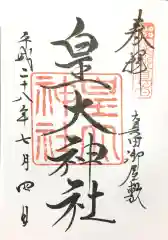 奉拝
真田御屋敷
皇大神社
平成二十八年七月四日